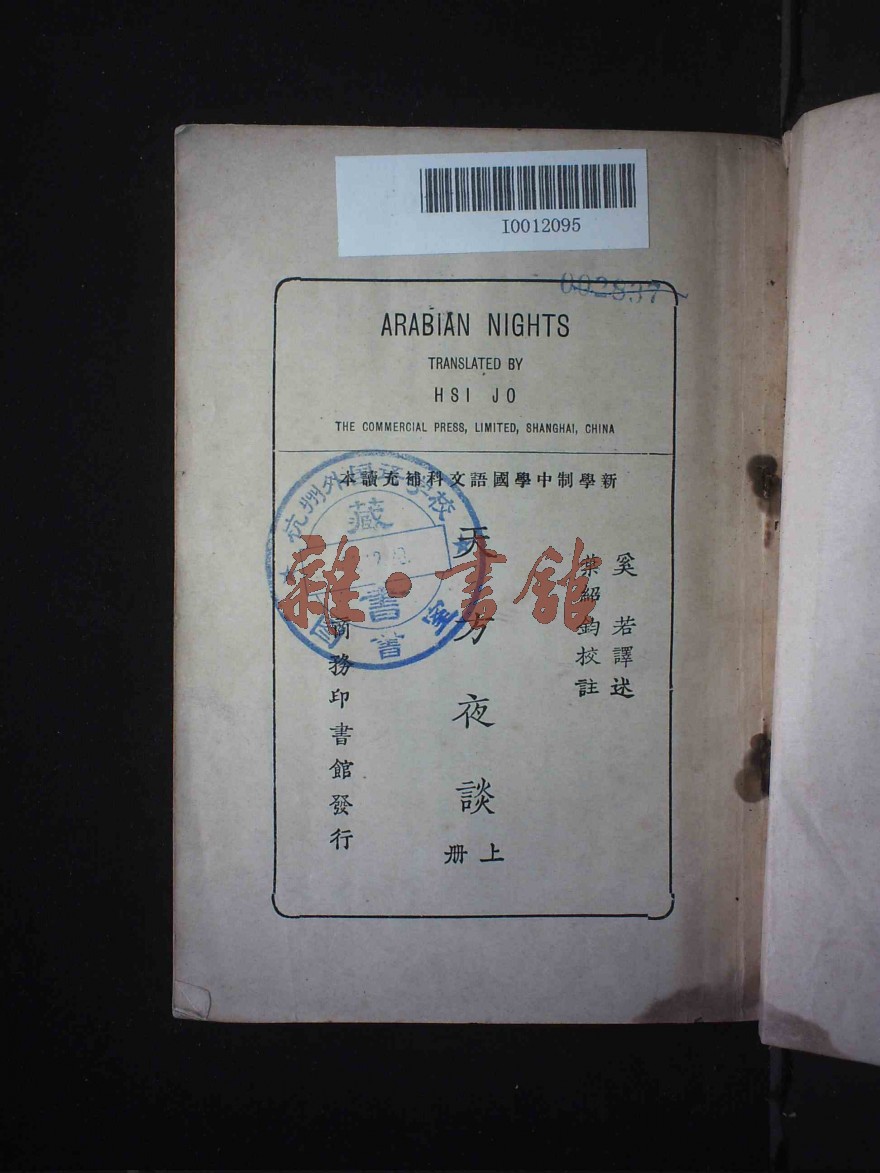 I0012095
002837
ARABIAN NIGHTS
TRANSLATED BY
HSI JO
THE COMMERCIAL PRESS, LIMITED, SHANGHAI, CHINA
新學制中學國語文科補充讀本
奚若譯述
葉紹鈞校註
天方夜談
上册
商務印書館發行
杭州外國語學校
藏書
圖書室
雜·書館